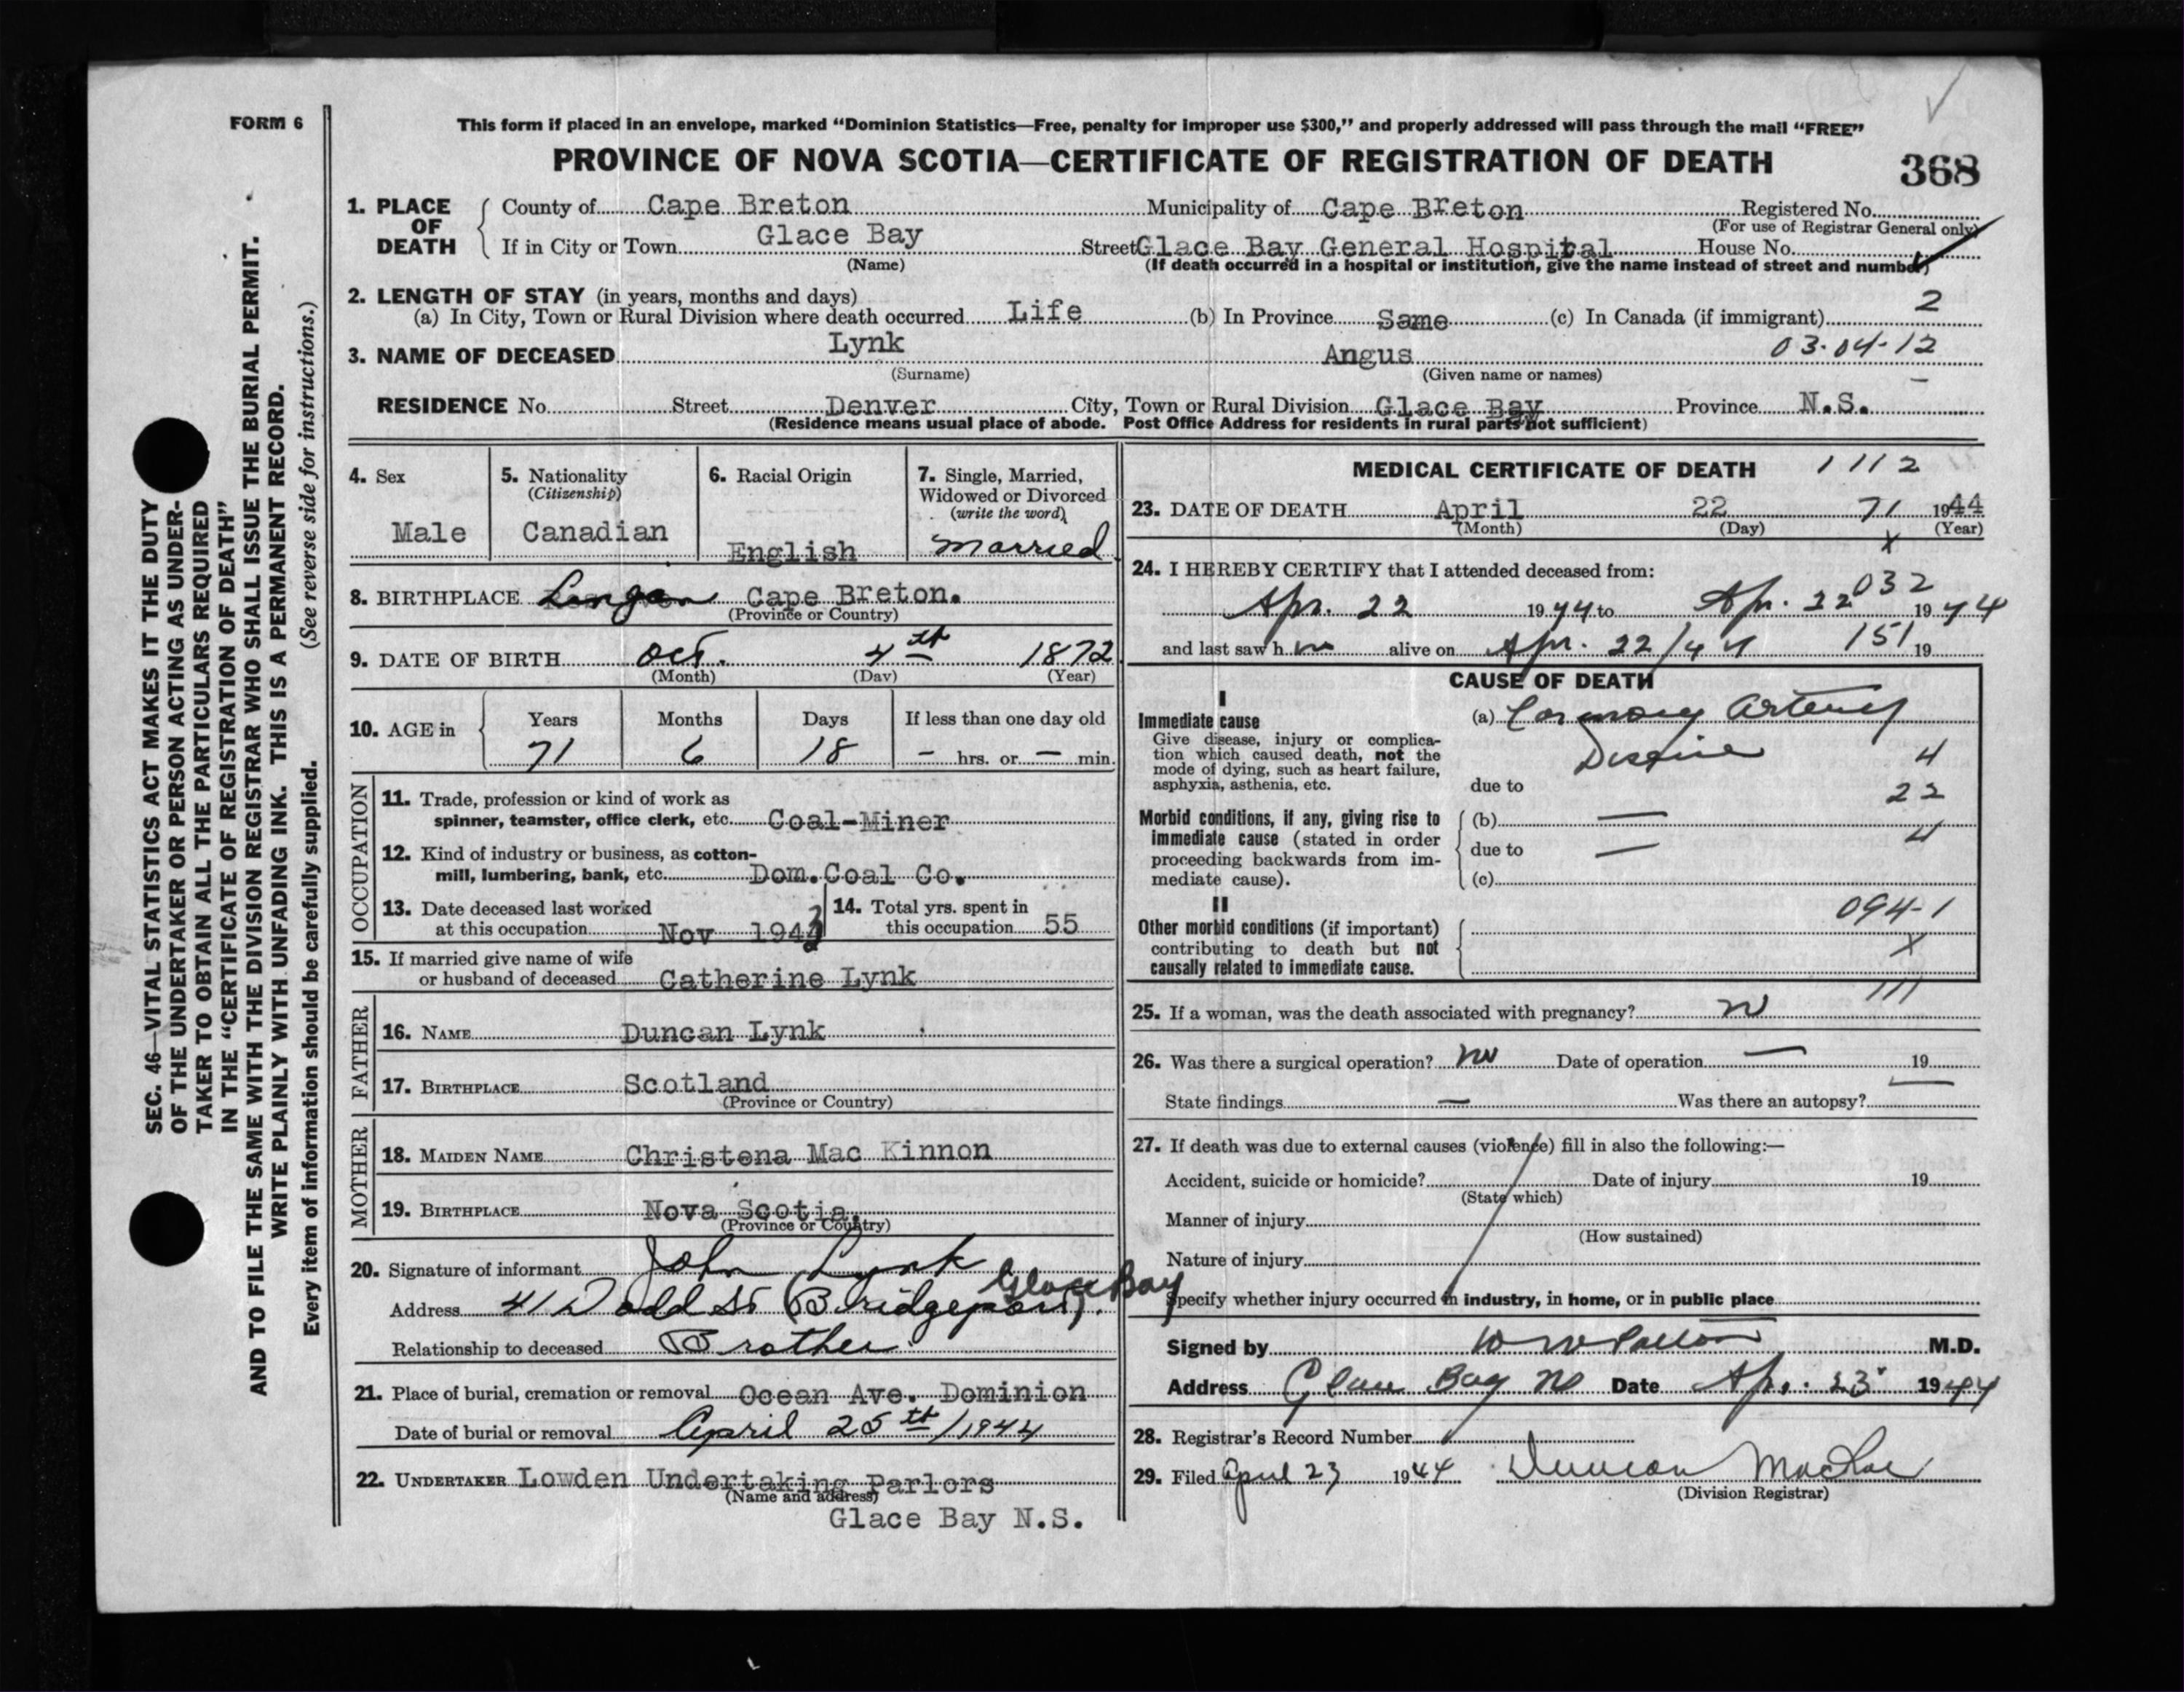 FORM 6
This form if placed in an envelope, marked “Dominion Statistics—Free, penalty for improper use $300,” and properly addressed will pass through the mail “FREE”
PROVINCE OF NOVA SCOTIA—CERTIFICATE OF REGISTRATION OF DEATH
368
SEC. 46—VITAL STATISTICS ACT MAKES IT THE DUTY
OF THE UNDERTAKER OR PERSON ACTING AS UNDER-
TAKER TO OBTAIN ALL THE PARTICULARS REQUIRED
IN THE “CERTIFICATE OF REGISTRATION OF DEATH”
AND TO FILE THE SAME WITH THE DIVISION REGISTRAR WHO SHALL ISSUE THE BURIAL PERMIT.
WRITE PLAINLY WITH UNFADING INK. THIS IS A PERMANENT RECORD.
Every item of information should be carefully supplied. (See reverse side for instructions.)
1. PLACE OF DEATH
County of Cape Breton Municipality of Cape Breton Registered No.
(For use of Registrar General only)
If in City or Town Glace Bay Street Glace Bay General Hospital House No.
(Name) (If death occurred in a hospital or institution, give the name instead of street and number)
2. LENGTH OF STAY (in years, months and days) 2
(a) In City, Town or Rural Division where death occurred Life (b) In Province Same (c) In Canada (if immigrant)
3. NAME OF DECEASED Lynk Angus 03-04-12
(Surname) (Given name or names)
RESIDENCE No. Street Denver City, Town or Rural Division Glace Bay Province N.S.
(Residence means usual place of abode. Post Office Address for residents in rural parts not sufficient)
4. Sex
Male
5. Nationality
(Citizenship)
Canadian
6. Racial Origin
English
7. Single, Married,
Widowed or Divorced
(write the word)
Married
8. BIRTHPLACE Lingan Cape Breton.
(Province or Country)
9. DATE OF BIRTH Oct. 4th 1872
(Month) (Day) (Year)
10. AGE in
Years Months Days If less than one day old
71 6 18 – hrs. or – min.
OCCUPATION
11. Trade, profession or kind of work as
spinner, teamster, office clerk, etc. Coal-Miner
12. Kind of industry or business, as cotton-
mill, lumbering, bank, etc. Dom. Coal Co.
13. Date deceased last worked
at this occupation Nov 1943
14. Total yrs. spent in
this occupation 55
15. If married give name of wife
or husband of deceased Catherine Lynk
FATHER
16. NAME Duncan Lynk
17. BIRTHPLACE Scotland
(Province or Country)
MOTHER
18. MAIDEN NAME Christena Mac Kinnon
19. BIRTHPLACE Nova Scotia.
(Province or Country)
20. Signature of informant John Lynk
Address 41 Dodd St (Bridgeport). Glace Bay
Relationship to deceased Brother
21. Place of burial, cremation or removal Ocean Ave. Dominion
Date of burial or removal April 25th/1944
22. UNDERTAKER Lowden Undertaking Parlors
(Name and address)
Glace Bay N.S.
MEDICAL CERTIFICATE OF DEATH 1112
23. DATE OF DEATH April 22 71 1944
(Month) (Day) (Year)
X
24. I HEREBY CERTIFY that I attended deceased from:
032
Apr. 22 1944 to Apr. 22 1944
and last saw h im alive on Apr. 22/44 151 19
CAUSE OF DEATH
I
Immediate cause
Give disease, injury or complica-
tion which caused death, not the
mode of dying, such as heart failure,
asphyxia, asthenia, etc.
(a) Coronary Artery
Disease 4
due to 22
Morbid conditions, if any, giving rise to
immediate cause (stated in order
proceeding backwards from im-
mediate cause).
(b) — 4
due to —
(c)
II
Other morbid conditions (if important)
contributing to death but not
causally related to immediate cause.
094-1
X
111
25. If a woman, was the death associated with pregnancy? no
26. Was there a surgical operation? no Date of operation — 19
State findings — Was there an autopsy? —
27. If death was due to external causes (violence) fill in also the following:—
Accident, suicide or homicide? Date of injury 19
(State which)
Manner of injury
(How sustained)
Nature of injury
Specify whether injury occurred in industry, in home, or in public place
Signed by W W Patton M.D.
Address Glace Bay NS Date Apr. 23 1944
28. Registrar's Record Number
29. Filed April 23 1944 Duncan MacRae
(Division Registrar)